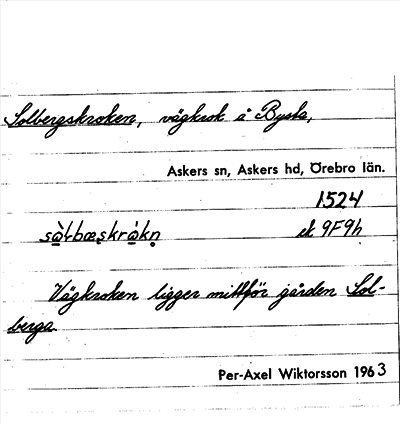 Solbergskroken, vägkrok å Bysta,
Askers sn, Askers hd, Örebro län.
1524
sò̱ɫbæskrà̱kn̥ ek 9F9h
Vägkroken ligger mittför gården Sol-
berga.
Per-Axel Wiktorsson 1963